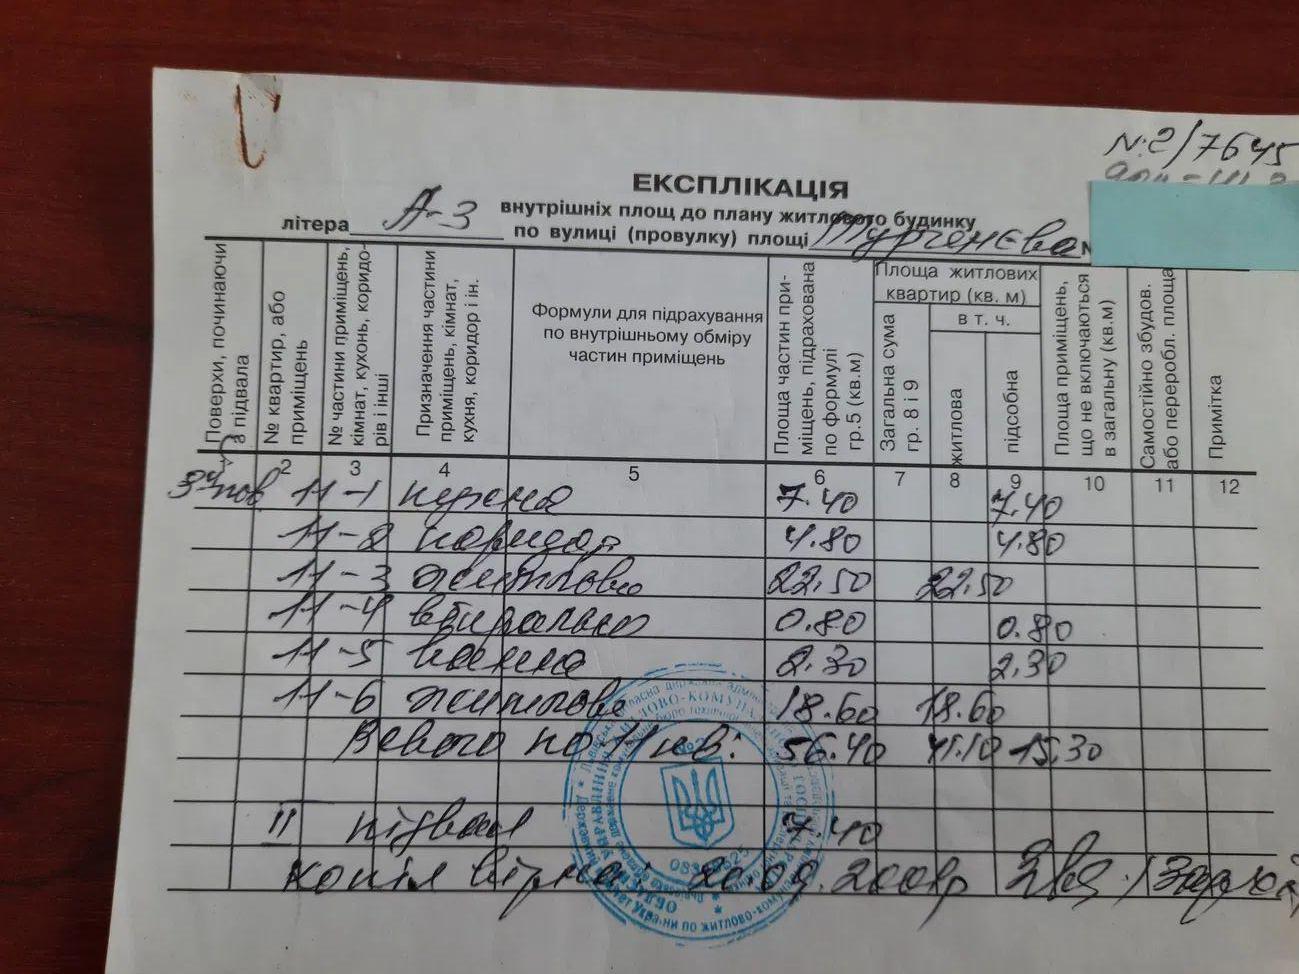 N: 2/7645
ЕКСПЛІКАЦІЯ
внутрішніх площ до плану житлового будинку
літера А-3 по вулиці (провулку) площі Тургенєва №
Поверхи, починаючи з підвала
№ квартир, або приміщень
№ частини приміщень, кімнат, кухонь, коридорів і інші
Призначення частини приміщень, кімнат, кухня, коридор і ін.
Формули для підрахування по внутрішньому обміру частин приміщень
Площа частин приміщень, підрахована по формулі гр.5 (кв.м)
Площа житлових квартир (кв. м)
Загальна сума гр. 8 і 9
в т. ч.
житлова
підсобна
Площа приміщень, що не включаються в загальну (кв.м)
Самостійно збудов. або переробл. площа
Примітка
2 3 4 5 6 7 8 9 10 11 12
3й пов 11-1 кухня 7.40 7.40
11-2 коридор 4.80 4.80
11-3 житлова 22.50 22.50
11-4 вбиральня 0.80 0.80
11-5 ванна 2.30 2.30
11-6 житлова 18.60 18.60
Всього по 11 кв: 56.40 41.10 15.30
II підвал 7.40
копія вірна: 20.09.2001р